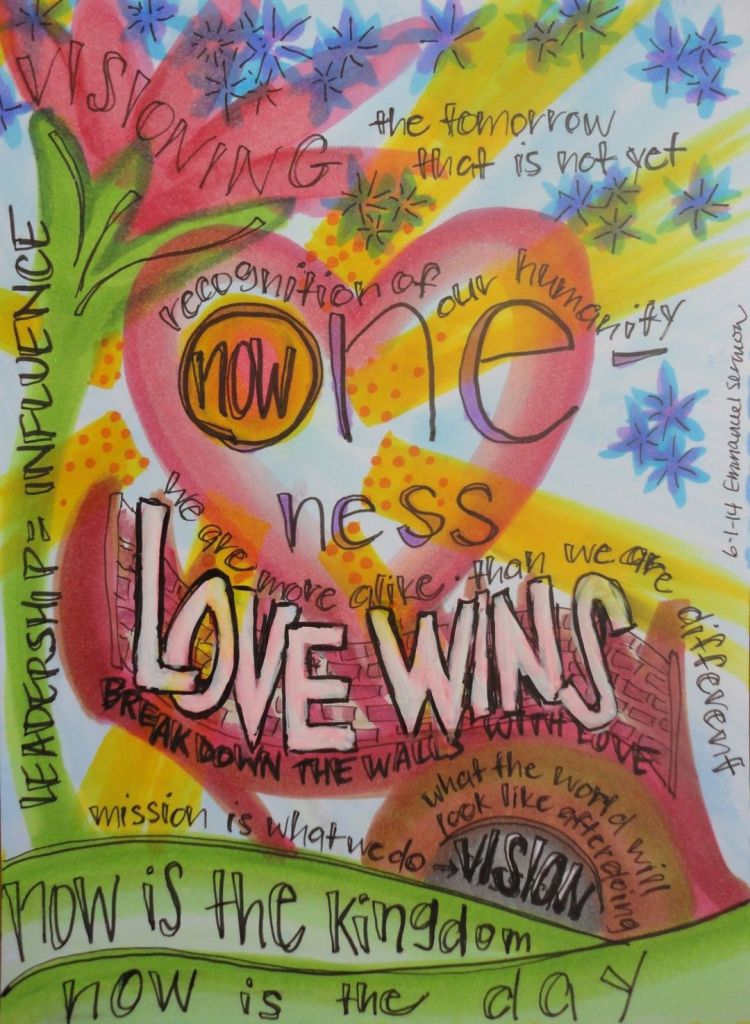 VISIONING
the tomorrow
that is not yet
LEADERSHIP = INFLUENCE
recognition of our humanity -
now
one
ness
we are more alike than we are different
LOVE WINS
BREAK DOWN THE WALLS WITH LOVE
mission is what we do → VISION
what the world will
look like after doing
now is the kingdom
now is the day
6-1-14 Emmanuel Sermon